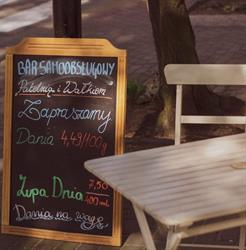 BAR SAMOOBSŁUGOWY
Patelnią i Wałkiem
Zapraszamy
Dania 4,49/100g
Zupa Dnia 7,50
400ml
Dania na wagę